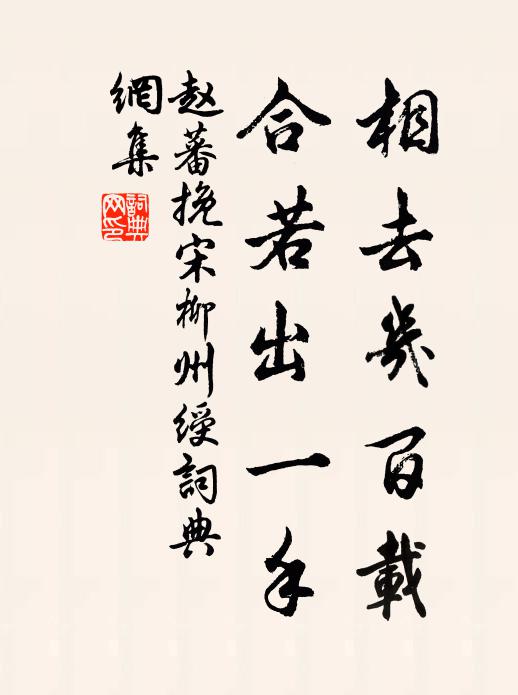 相去幾百載
合若出一手
赵蕃挽宋柳州綬詞典
網集
詞典
网印